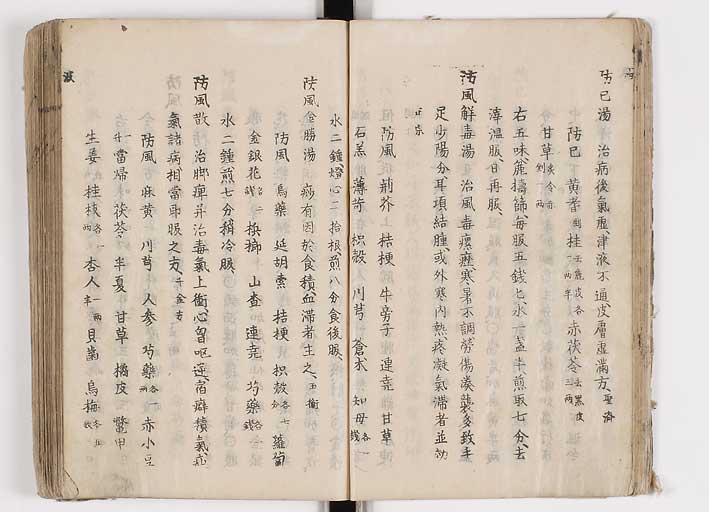 防已湯 治病後氣虛津液不通皮膚虛滿方 聖濟
防已 黃耆 桂 去麁皮各一兩半 赤茯苓 去黑皮三兩
甘草
右五味麁擣篩每服五錢匕水一盞半煎取七分去
滓溫服日再服
防風解毒湯 治風毒瘰癧寒暑不調勞傷湊襲多致手
足少陽分耳項結腫或外寒內熱疼凝氣滯者並効
正宗
防風 荊芥 桔梗 牛旁子 連堯 甘草
石羔 薄苛 枳殼 川芎 蒼朮 知母 各一錢
水二鍾燈心二拾根煎八分食後服
防風金勝湯 痧有因於食積血滯者主之 玉衡
防風 烏藥 延胡索 桔梗 枳殼 各七分 蘿蔔
金銀花 檳榔 山查 連堯 芍藥
水二鍾煎七分稍冷服
防風散 治脚痺并治毒氣上衝心胷嘔逆宿癖積氣疝
氣諸病相當即服之方 千金
防風 麻黃 川芎 人參 芍藥 赤小豆
當歸 茯苓 半夏 甘草 橘皮 鱉甲
生姜 桂枝 各一兩 杏人 一兩半 貝齒 烏梅